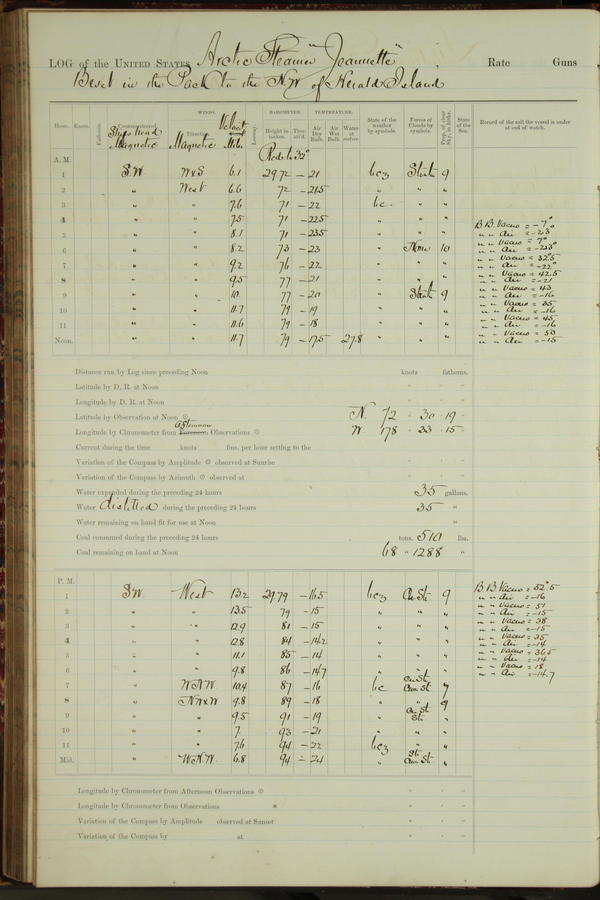 LOG of the UNITED STATES Arctic Steamer "Jeannette", Rate Guns
Beset in the Pack to the N.W. of Herald Island
Hour. Knots. Fathoms. Ships head Magnetic WINDS. Direction Magnetic Velocity Miles Leeway. BAROMETER. Height in inches. Ther. att'd. TEMPERATURE. Air Dry Bulb. Air Wet Bulb. Water at surface. State of the weather by symbols. Forms of Clouds by symbols. Prop. of clear Sky, in tenths. State of the Sea. Record of the sail the vessel is under at end of watch.
A. M. Red. to 32°
1 S.W W & S 6.1 29.72 -21 bcz Strati 9
2 " West 6.6 72 -21.5 " " "
3 " " 7.6 71 -22 bc " "
4 " " 7.5 71 -22.5 " " " B.B. Vacuo = -7°
5 " " 8.1 71 -23.5 " " " " " Air = -23
6 " " 8.2 73 -23 " None 10 " " Vacuo = 7°
" " Air = -23°
7 " " 9.2 76 -22 " " " " " Vacuo = 32.5
" " Air = -22°
8 " " 9.5 77 -21 " " " " " Vacuo = 42.5
" " Air = -21
9 " " 10. 77 -20 " Strati 9 " " Vacuo = 43
" " Air = -16
10 " " 11.7 79 -19 " " " " " Vacuo = 35
" " Air = -16
11 " " 11.6 79 -18 " " " " " Vacuo = 45
" " Air = -16
Noon. " " 11.7 79 -17.5 27.8 " " " " " Vacuo = 50
" " Air = -15
Distance run by Log since preceding Noon knots fathoms.
Latitude by D. R. at Noon
Longitude by D. R. at Noon
Latitude by Observation at Noon N. 72 ° 30 ' 19 "
Longitude by Chronometer from Afternoon Observations W 178 ° 33 ' 15 "
Current during the time knots fms. per hour setting to the
Variation of the Compass by Amplitude observed at Sunrise
Variation of the Compass by Azimuth observed at
Water expended during the preceding 24 hours 35 gallons.
Water distilled during the preceding 24 hours 35 "
Water remaining on hand fit for use at Noon "
Coal consumed during the preceding 24 hours tons. 510 lbs.
Coal remaining on hand at Noon 68 " 1288 "
P. M.
1 S.W West 13.2 29.79 -16.5 bcz Cir St 9 B.B. Vacuo = 52°.5
" " Air = -16
2 " " 13.5 79 -15 " " " " " Vacuo = 51
" " Air = -15
3 " " 12.9 81 -15 " " " " " Vacuo = 38
" " Air = -15
4 " " 12.8 84 -14.2 " " " " " Vacuo = 35
" " Air = -14
5 " " 11.1 85 -14 " " " " " Vacuo = 36.5
" " Air = -14
6 " " 9.8 86 -14.7 " " " " " Vacuo = 18
" " Air = -14.7
7 " W.N.W. 10.4 87 -16 bc Cir St Cum St. 7
8 " N W x W 9.8 89 -18 " " 9
9 " " 9.5 91 -19 " Cir St Str. "
10 " " 7. 93 -21 " " "
11 " " 7.6 94 -22 bcz " "
Mid. " W.N.W. 6.8 94 -24 " Str. Cum St. "
Longitude by Chronometer from Afternoon Observations
Longitude by Chronometer from Observations
Variation of the Compass by Amplitude observed at Sunset
Variation of the Compass by at